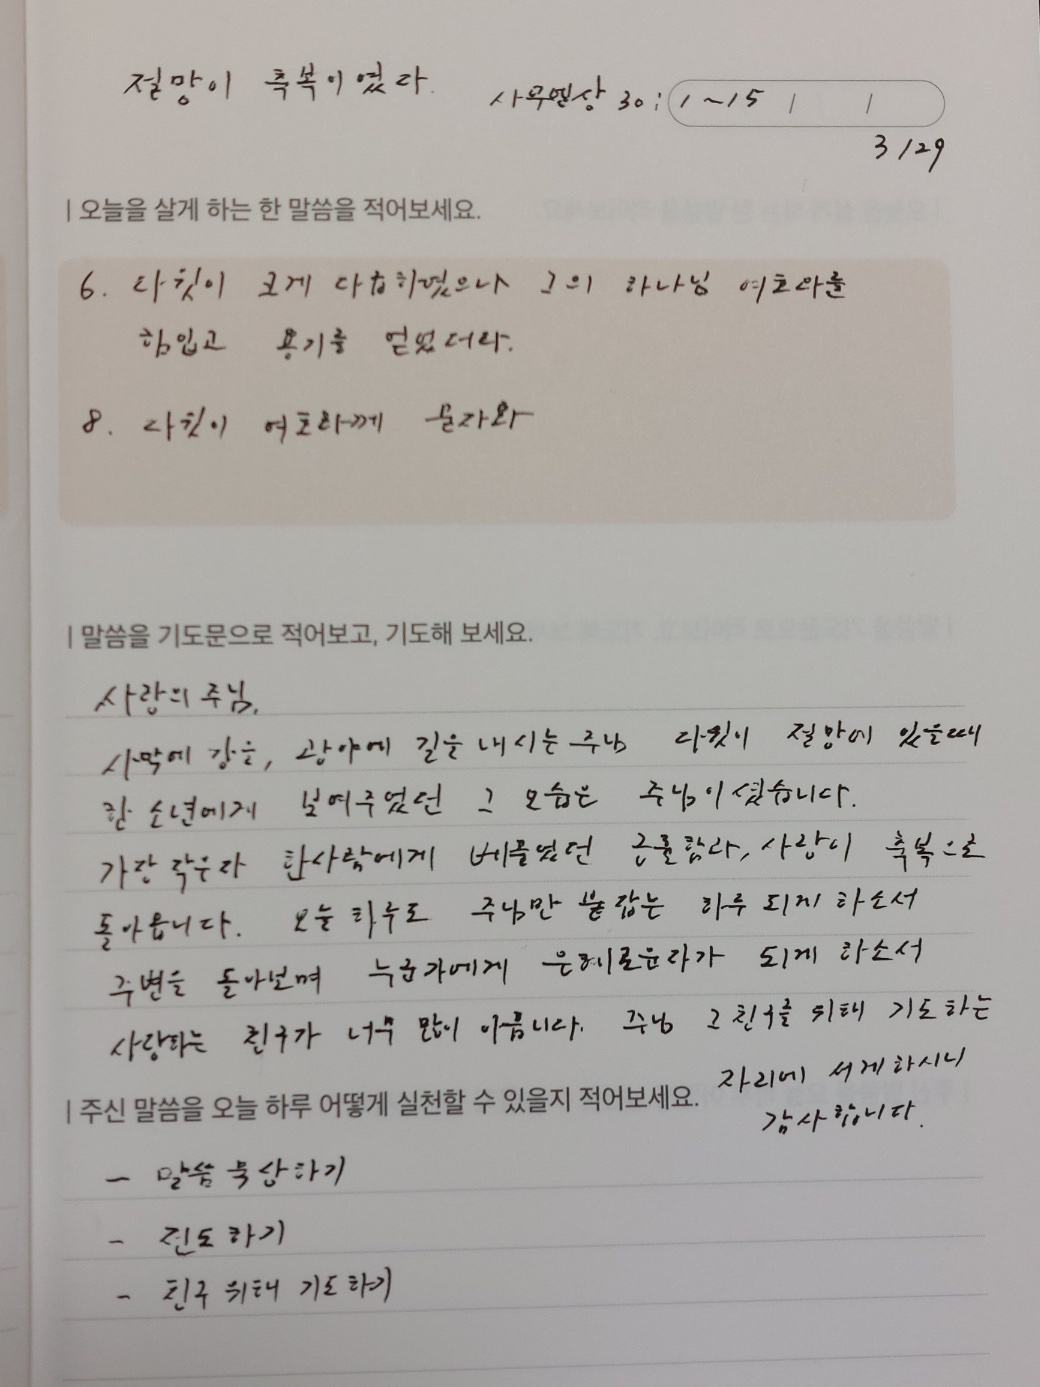 절망이 축복이였다.
사무엘상 30:1~15
3/29
오늘을 살게 하는 한 말씀을 적어보세요.
6. 다윗이 크게 다급하였으나 그의 하나님 여호와를
힘입고 용기를 얻었더라.
8. 다윗이 여호와께 묻자와
말씀을 기도문으로 적어보고, 기도해 보세요.
사랑의 주님,
사막에 강을, 광야에 길을 내시는 주님 다윗이 절망에 있을때
한 소년에게 보여주었던 그 모습은 주님이셨습니다.
가장 약한 한사람에게 베풀었던 긍휼함과, 사랑이 축복으로
돌아옵니다. 오늘 하루도 주님만 붙잡는 하루 되게 하소서
주변을 돌아보며 누군가에게 은혜로운자가 되게 하소서
사랑하는 친구가 너무 많이 아픕니다. 주님 그 친구를 위해 기도하는
자리에 서게하시니
감사합니다.
주신 말씀을 오늘 하루 어떻게 실천할 수 있을지 적어보세요.
- 말씀 묵상하기
- 전도하기
- 친구 위해 기도하기